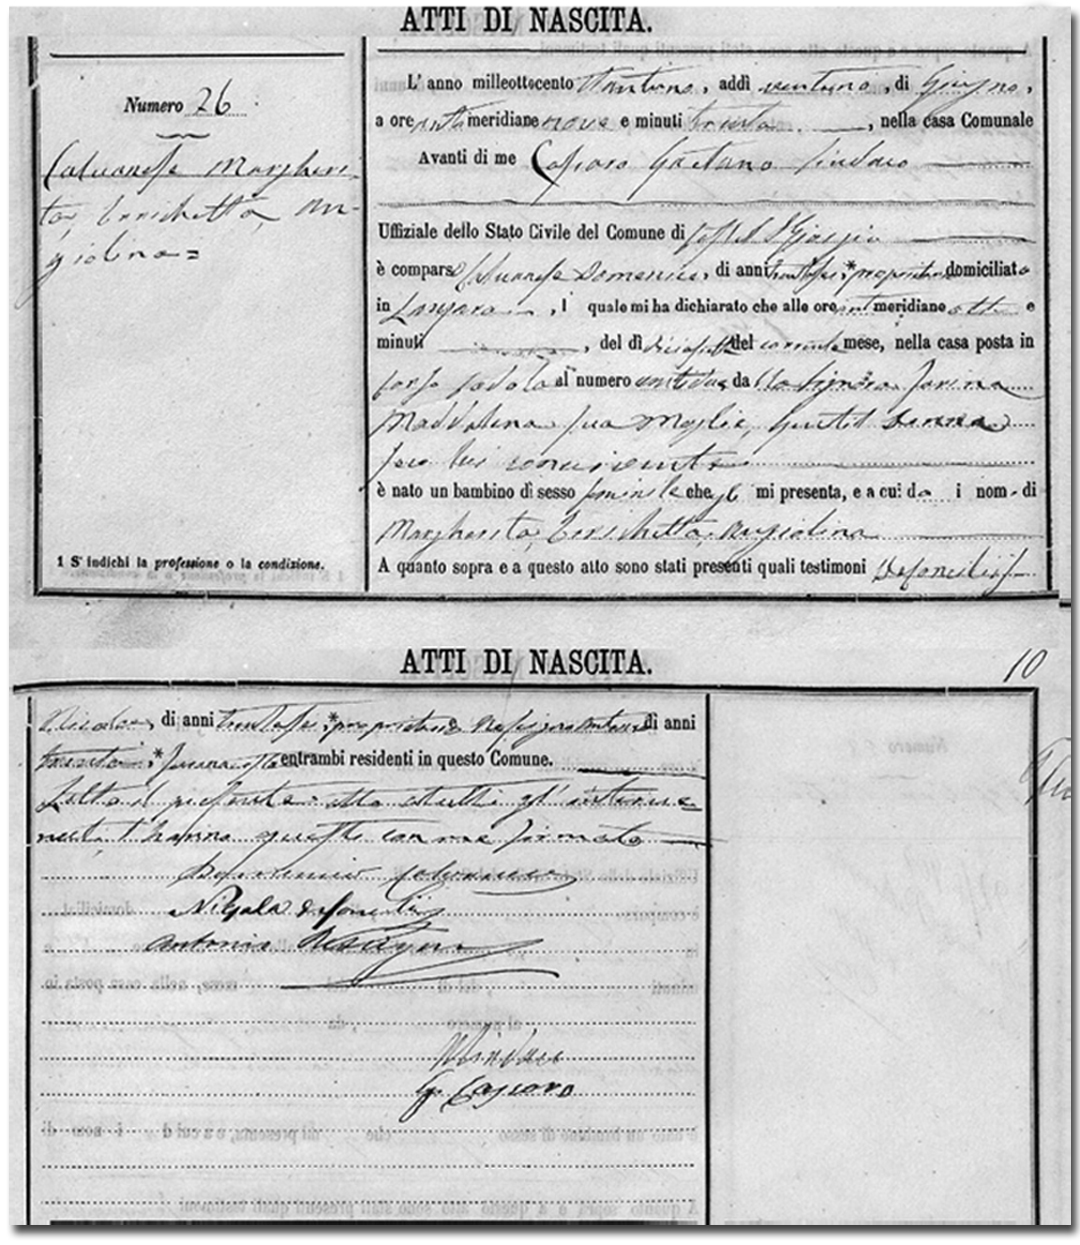 ATTI DI NASCITA.
Numero 26
Calvanese Margheri-
ta, Enrichetta, An-
giolina =
1 S' indichi la professione o la condizione.
L' anno milleottocento , addì ventuno, di Giugno,
a ore anti meridiane nove e minuti trenta , nella casa Comunale
Avanti di me Capuano Gaetano Sindaco
Uffiziale dello Stato Civile del Comune di Castel S Giorgio
è comparso Calvanese Domenico, di anni trentasei *proprietario domiciliato
in Lanzara , l quale mi ha dichiarato che alle ore anti meridiane otto e
minuti , del dì del corrente mese, nella casa posta in
al numero ventidue da lla Signora Farina
Maddalena sua moglie, gentil donna
seco lui convivente
è nato un bambino di sesso feminile che gli mi presenta, e a cui dà i nomi di
Margherita, Enrichetta, Angiolina
A quanto sopra e a questo atto sono stati presenti quali testimoni
ATTI DI NASCITA.
10
Nicola, di anni trentasei *proprietario e Antonio di anni
trenta * entrambi residenti in questo Comune.
Letto il presente atto a tutti gl' interve=
nuti l' hanno questi con me firmato
Domenico Calvanese
Nicola
Antonio
Il Sindaco
G. Capuano